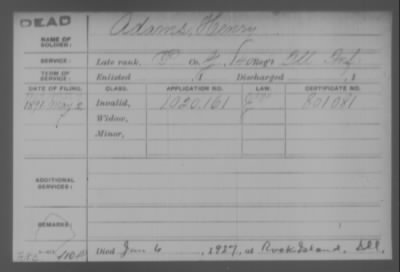 DEAD
Adams, Henry
NAME OF SOLDIER:
SERVICE: Late rank, P Co. 140 Reg't Ill Inf.
TERM OF SERVICE: Enlisted , 1 Discharged , 1
DATE OF FILING. CLASS. APPLICATION NO. LAW. CERTIFICATE NO.
1891 May 2 Invalid, 1020,161 801081
Widow,
Minor,
ADDITIONAL SERVICES:
REMARKS:
Died Jan 6, 1927, at Rock Island, Ill.